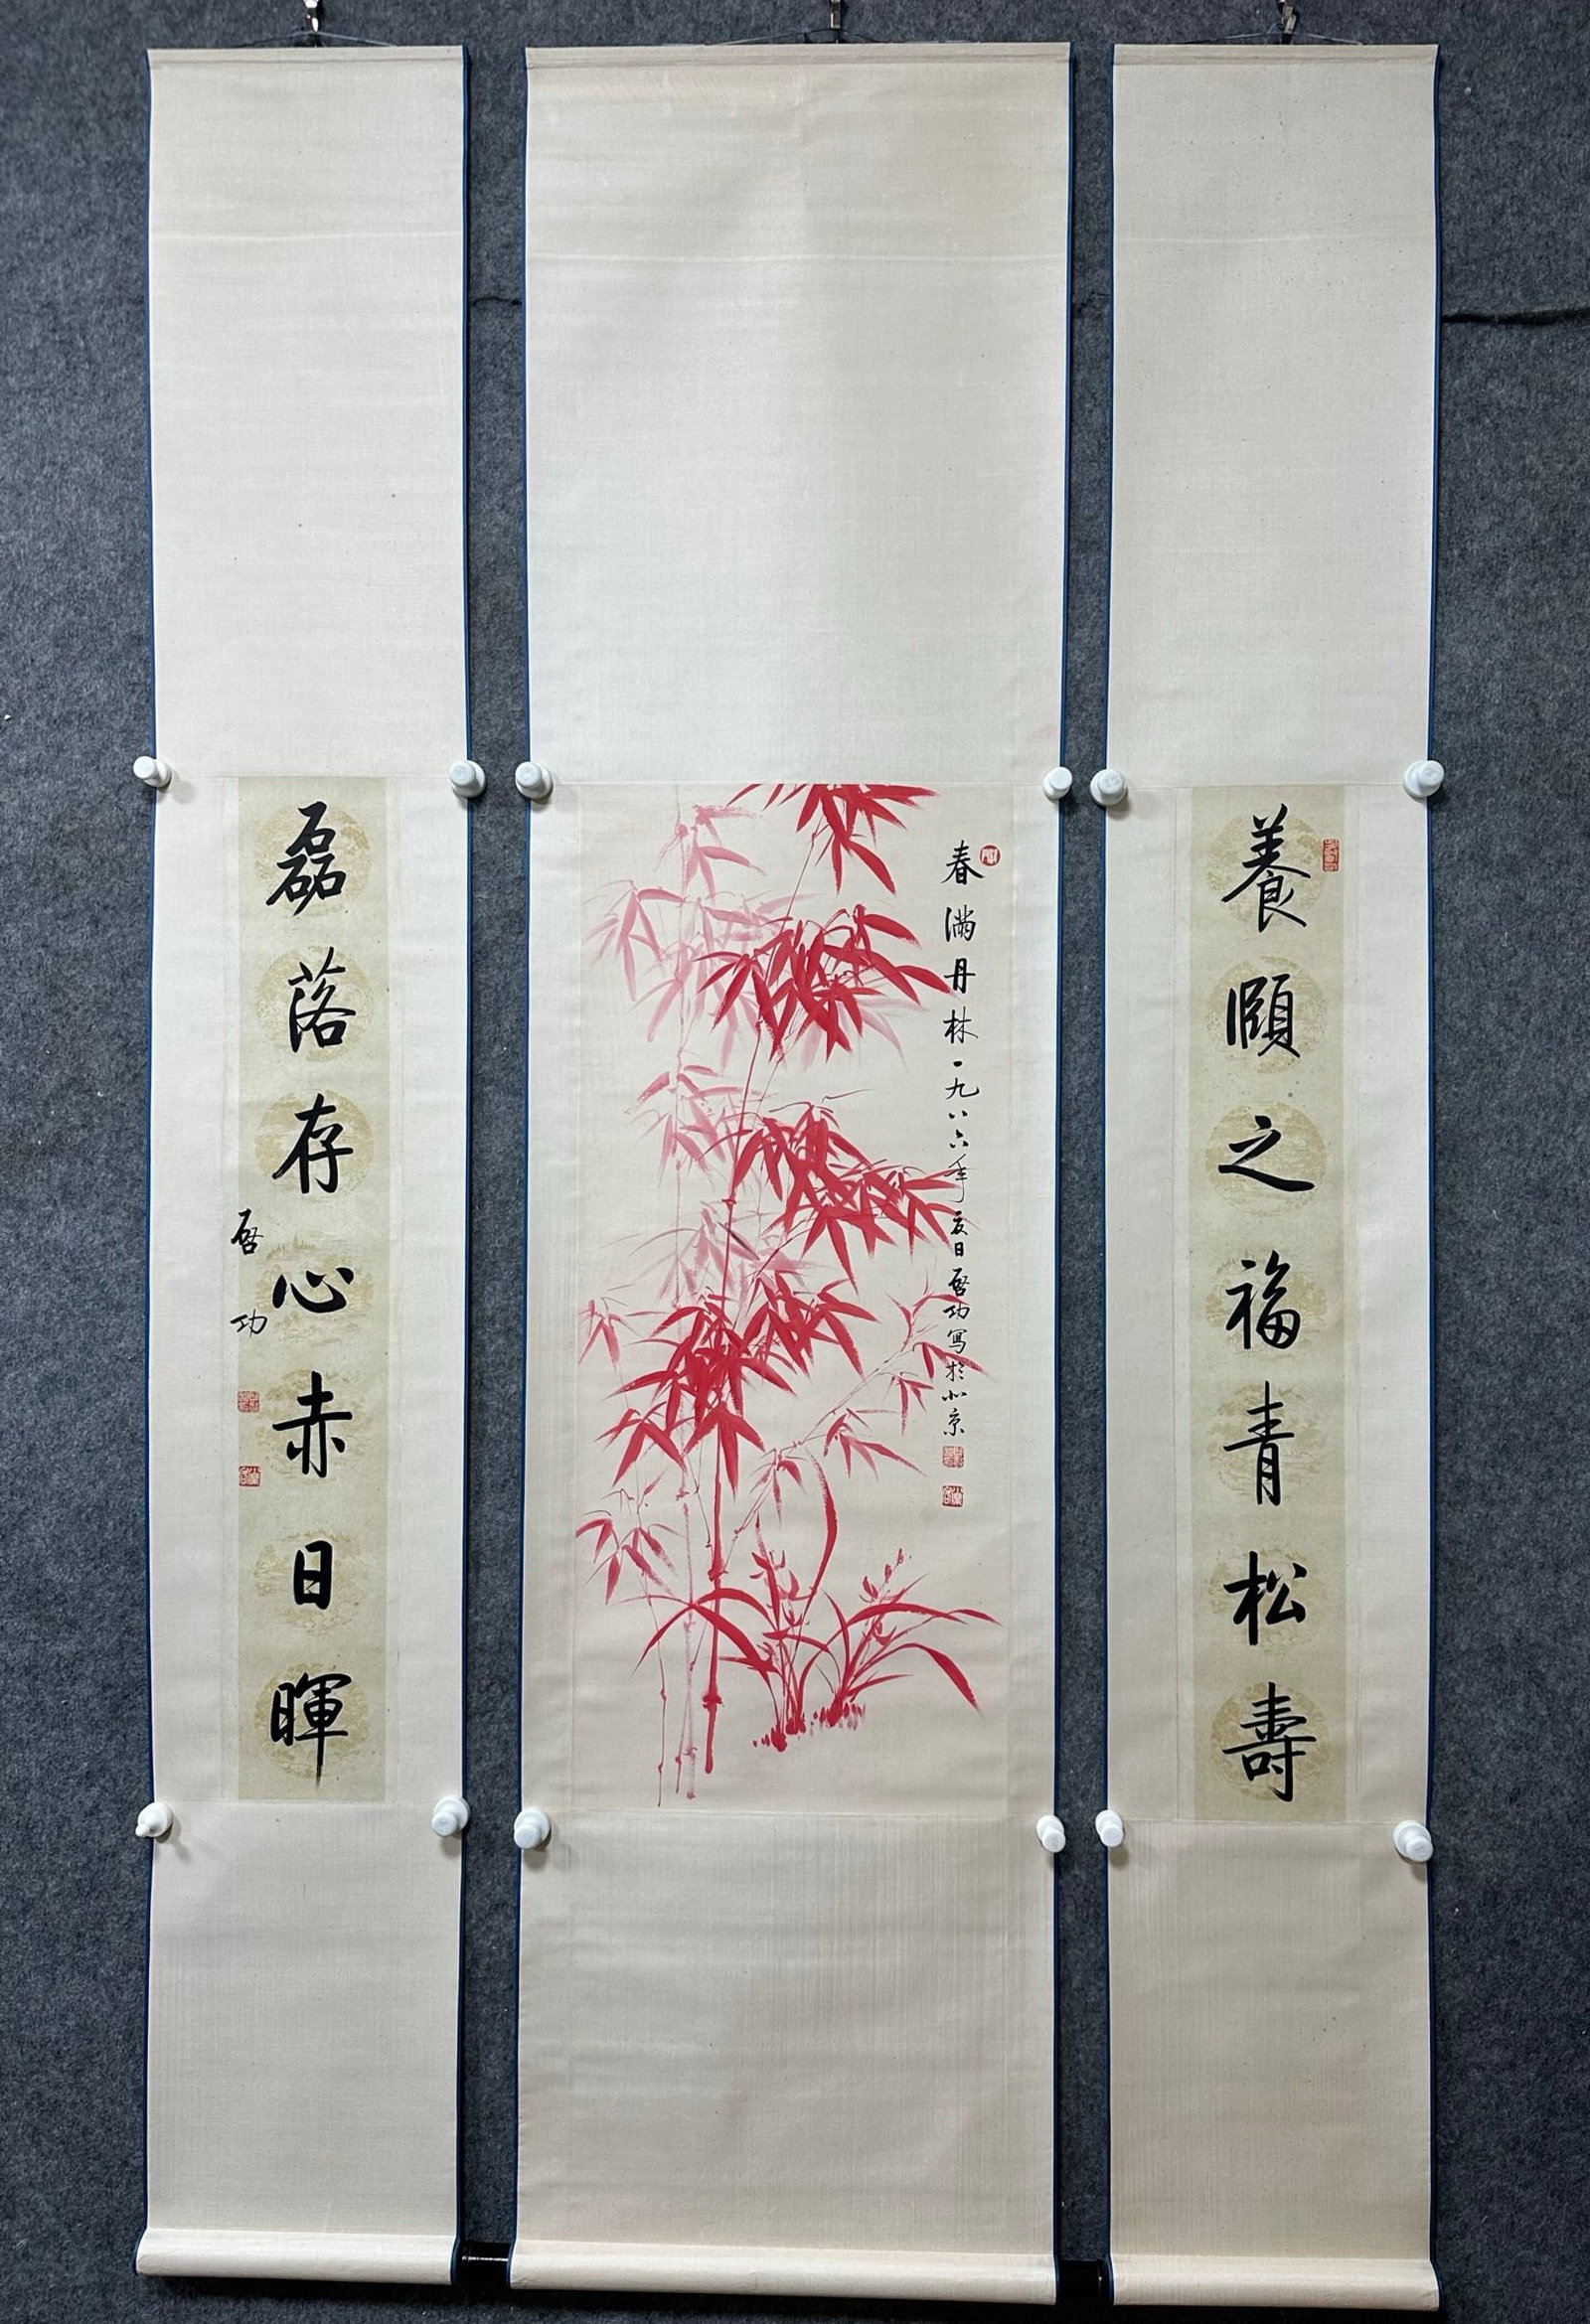 養頤之福青松壽
春滿丹林一九八六年夏日啓功寫於北京
磊落存心赤日暉
啓功